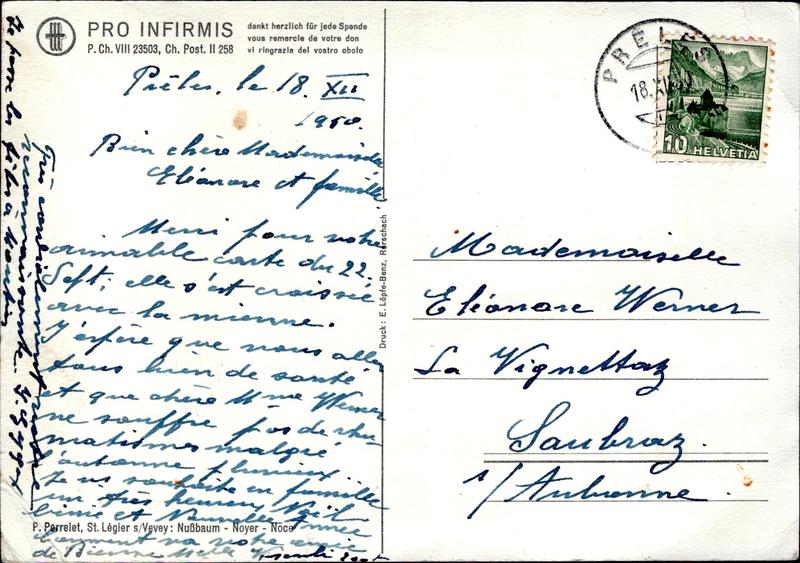 PRO INFIRMIS
P. Ch. VIII 23503, Ch. Post. II 258
dankt herzlich für jede Spende
vous remercie de votre don
vi ringrazia del vostro obolo
Prêles, le 18. XII
1950.
Bien chère Mademoiselle
Eléonore et famille
Merci pour votre
aimable carte du 22.
Sept; elle s'est croisée
avec la mienne.
J'espère que vous allez
tous bien de santé
et que chère Mme Werner
ne souffre pas de rhu-
matismes malgré
l'automne pluvieux.
Je vous souhaite en famille
un très heureux Noël
bénie et Nouvelle Année
Comment va votre amie
de Bienne Melle
Très cordialement votre
reconnaissante
Je passe les fêtes à Moutier
P. Perrelet, St. Légier s/Vevey: Nußbaum - Noyer - Noce
Druck: E. Löpfe-Benz, Rorschach
PRÊLES
18.XII.50
10 HELVETIA
Mademoiselle
Eléonore Werner
La Vignettaz
Saubraz.
s/Aubonne.